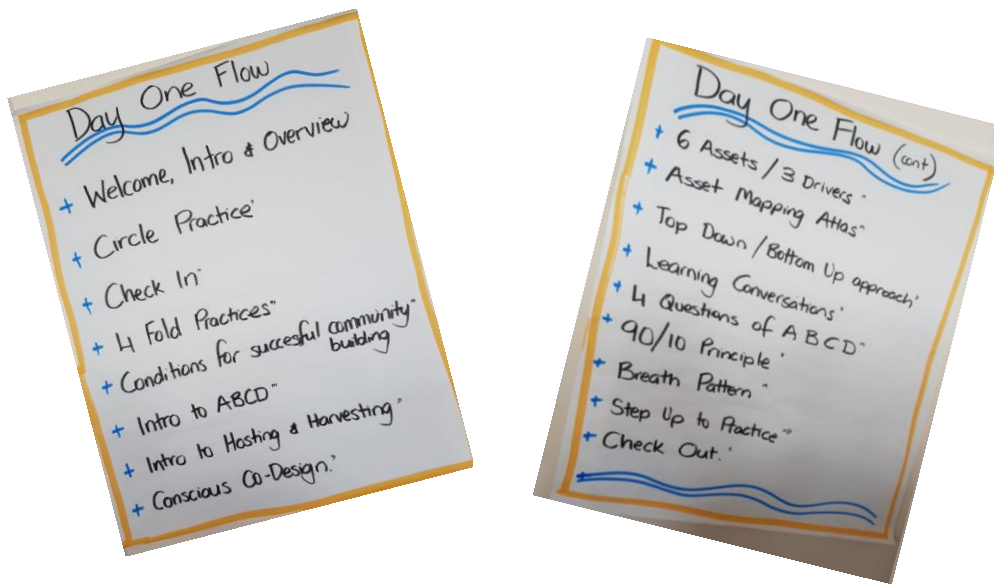 Day One Flow
+ Welcome, Intro & Overview
+ Circle Practice'
+ Check In"
+ 4 Fold Practices"
+ Conditions for succesful community"
building
+ Intro to ABCD"
+ Intro to Hosting & Harvesting"
+ Conscious Co-Design."
Day One Flow (cont)
+ 6 Assets / 3 Drivers"
+ Asset Mapping Atlas"
+ Top Down / Bottom Up approach'
+ Learning Conversations"
+ 4 Questions of A B C D"
+ 90/10 Principle"
+ Breath Pattern"
+ Step Up to Practice"
+ Check Out."